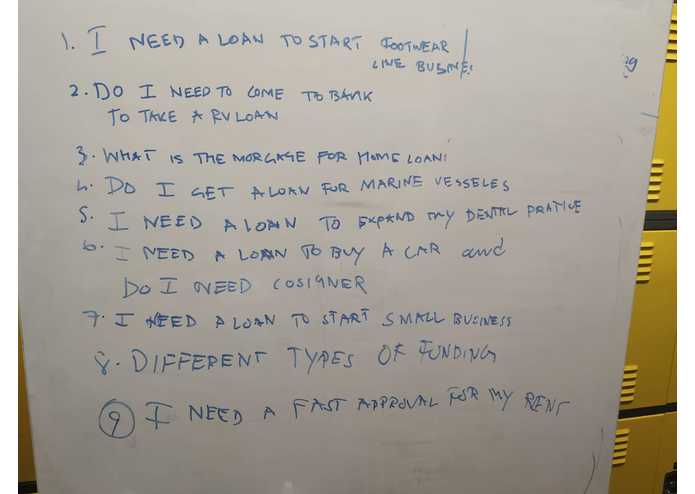 1. I NEED A LOAN TO START FOOTWEAR
LINE BUSINE.
2. DO I NEED TO COME TO BANK
TO TAKE A RV LOAN
3. WHAT IS THE MORGAGE FOR HOME LOAN!
4. DO I GET A LOAN FOR MARINE VESSELES
5. I NEED A LOAN TO EXPAND MY DENTAL PRATICE
6. I NEED A LOAN TO BUY A CAR and
DO I NEED COSIGNER
7. I NEED A LOAN TO START SMALL BUSINESS
8. DIFFERENT TYPES OF FUNDING
9 I NEED A FAST APPROVAL FOR MY RENT